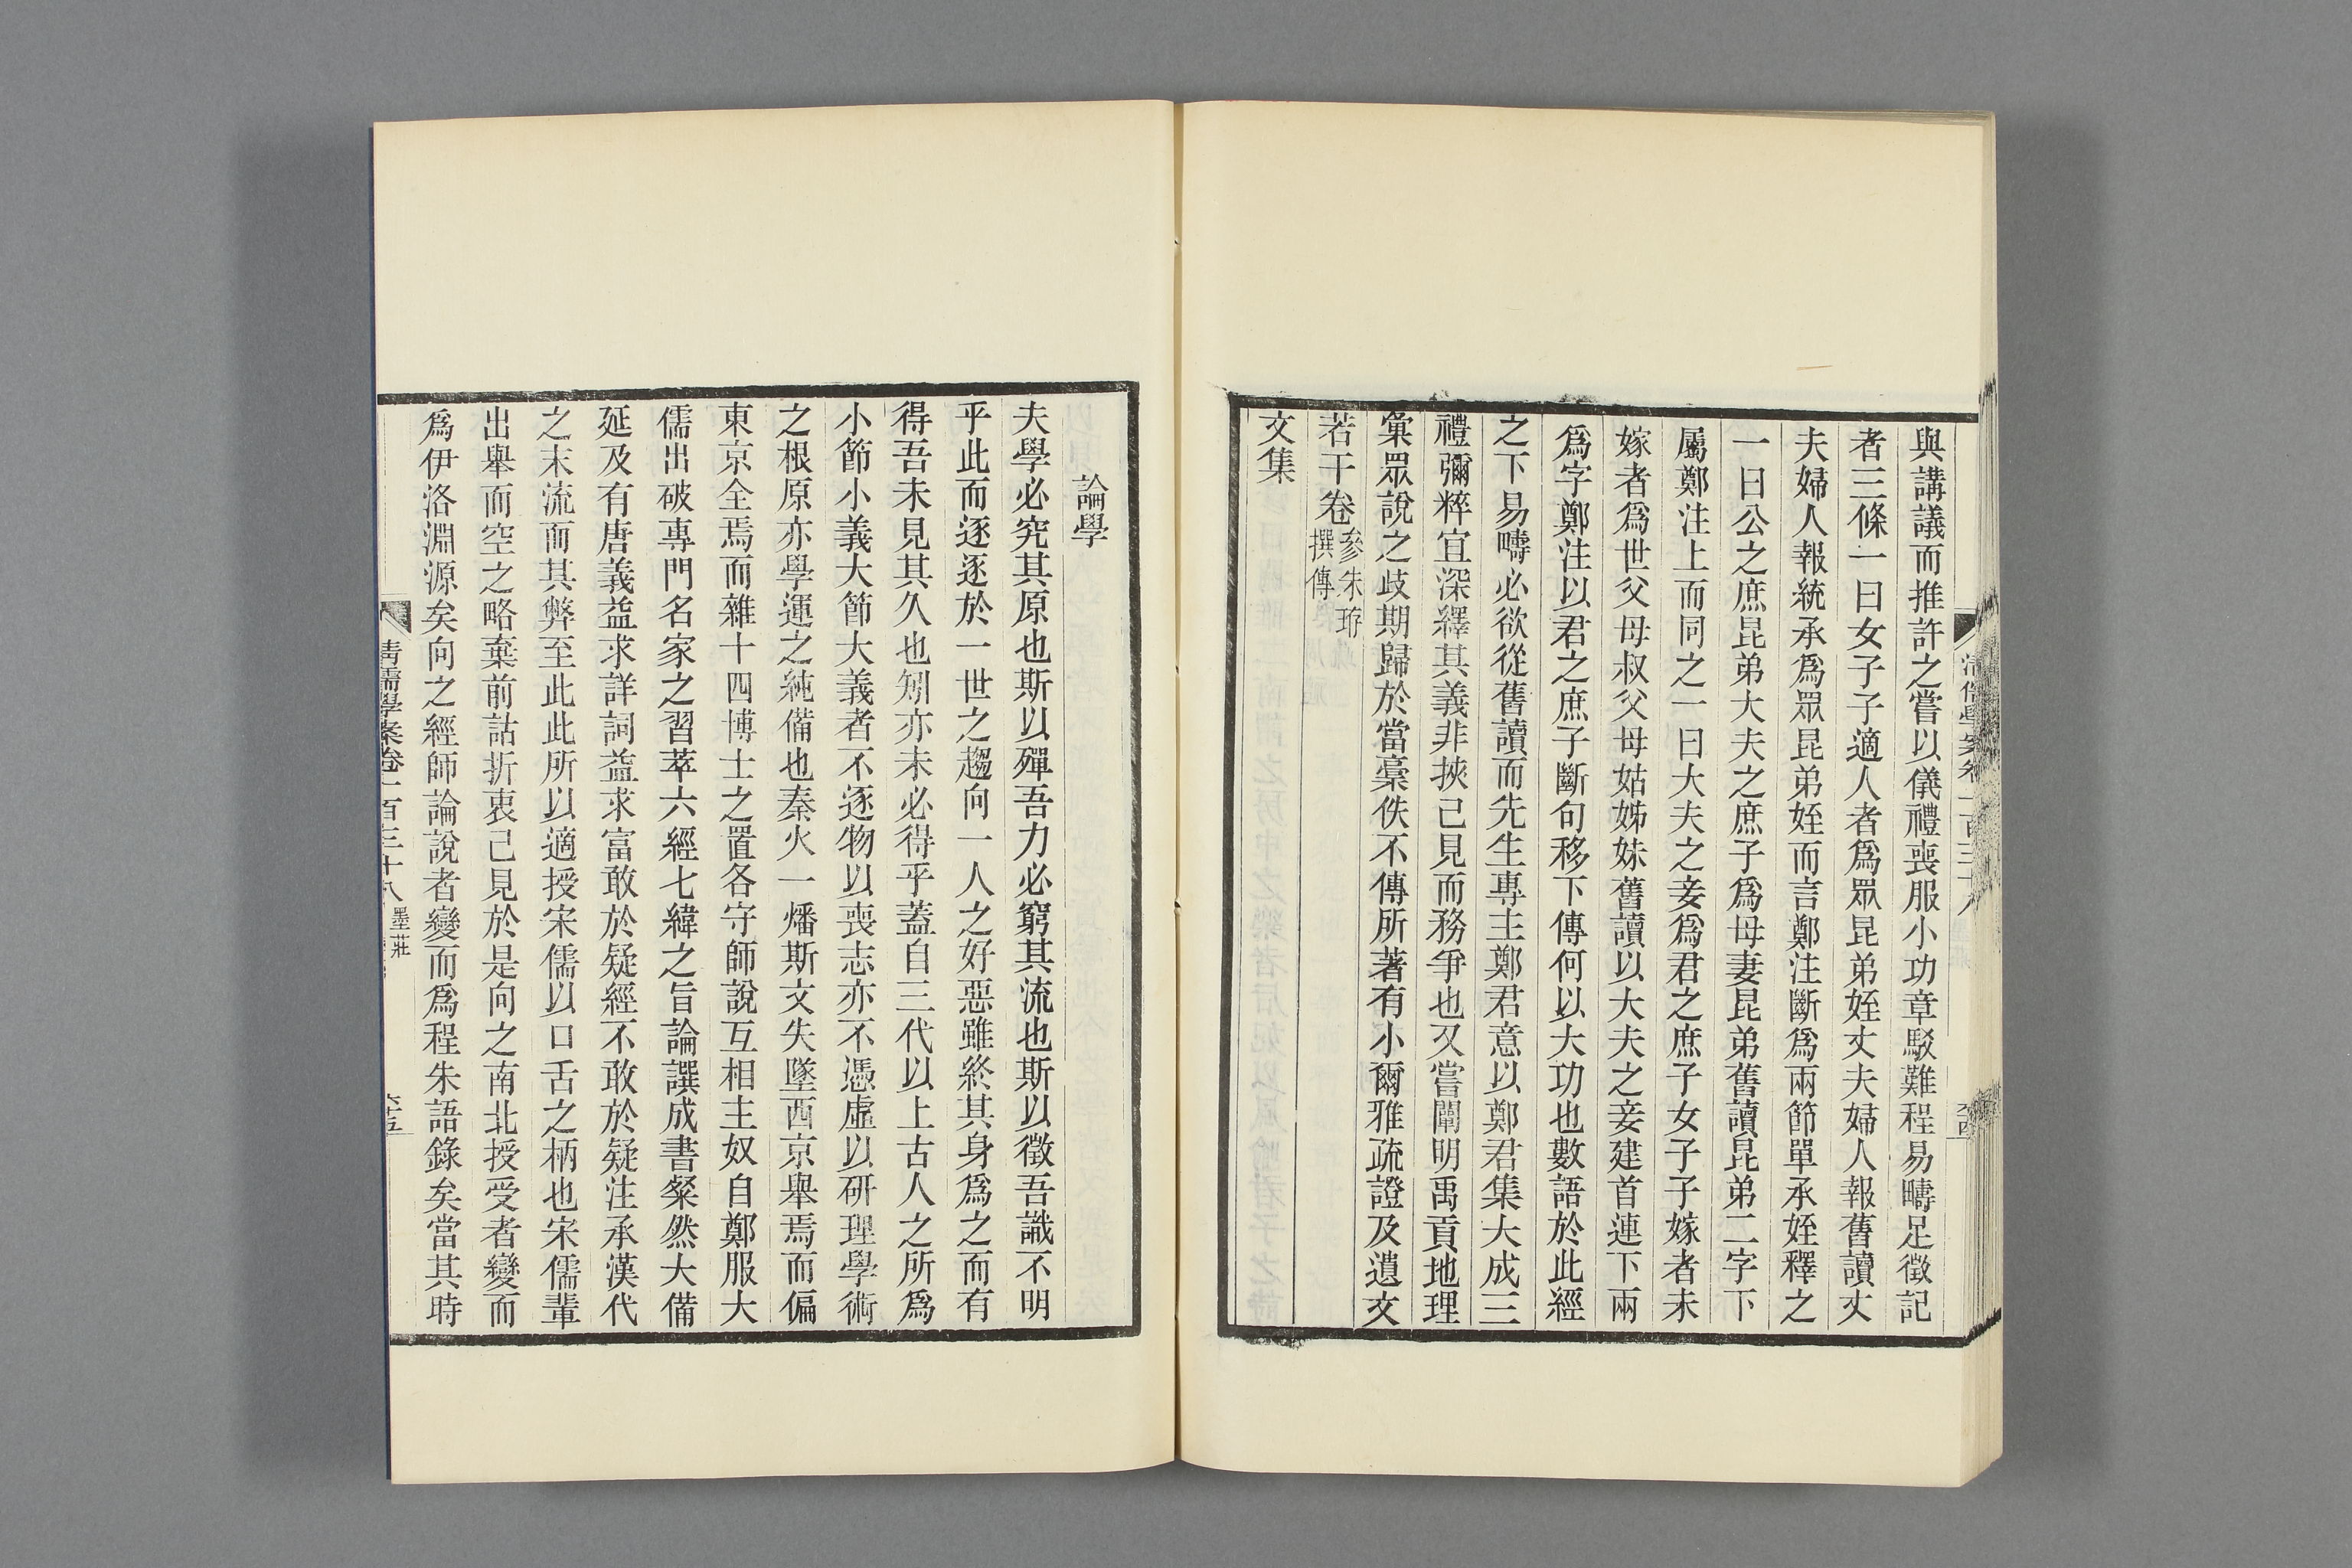 與講議而推許之嘗以儀禮喪服小功章駁難程易疇足徵記
者三條一曰女子子適人者爲眾昆弟姪丈夫婦人報舊讀丈
夫婦人報統承爲眾昆弟姪而言鄭注斷爲兩節單承姪釋之
一曰公之庶昆弟大夫之庶子爲母妻昆弟舊讀昆弟二字下
屬鄭注上而同之一曰大夫之妾爲君之庶子女子子嫁者未
嫁者爲世父母叔父母姑姊妹舊讀以大夫之妾建首連下兩
爲字鄭注以君之庶子斷句移下傳何以大功也數語於此經
之下易疇必欲從舊讀而先生專主鄭君意以鄭君集大成三
禮彌粹宜深繹其義非挾己見而務爭也又嘗闡明禹貢地理
彙眾說之歧期歸於當稾佚不傳所著有小爾雅疏證及遺文
若干卷參朱珔
撰傳
文集
清儒學案卷一百三十八
論學
夫學必究其原也斯以殫吾力必窮其流也斯以徵吾識不明
乎此而逐逐於一世之趨向一人之好惡雖終其身爲之而有
得吾未見其久也矧亦未必得乎蓋自三代以上古人之所爲
小節小義大節大義者不逐物以喪志亦不憑虛以研理學術
之根原亦學運之純備也秦火一燔斯文失墜西京舉焉而偏
東京全焉而雜十四博士之置各守師說互相主奴自鄭服大
儒出破專門名家之習萃六經七緯之旨論譔成書粲然大備
延及有唐義益求詳詞益求富敢於疑經不敢於疑注承漢代
之末流而其弊至此此所以適授宋儒以口舌之柄也宋儒輩
出舉而空之略棄前詁折衷己見於是向之南北授受者變而
爲伊洛淵源矣向之經師論說者變而爲程朱語錄矣當其時
清儒學案卷一百三十八 墨莊
六十五